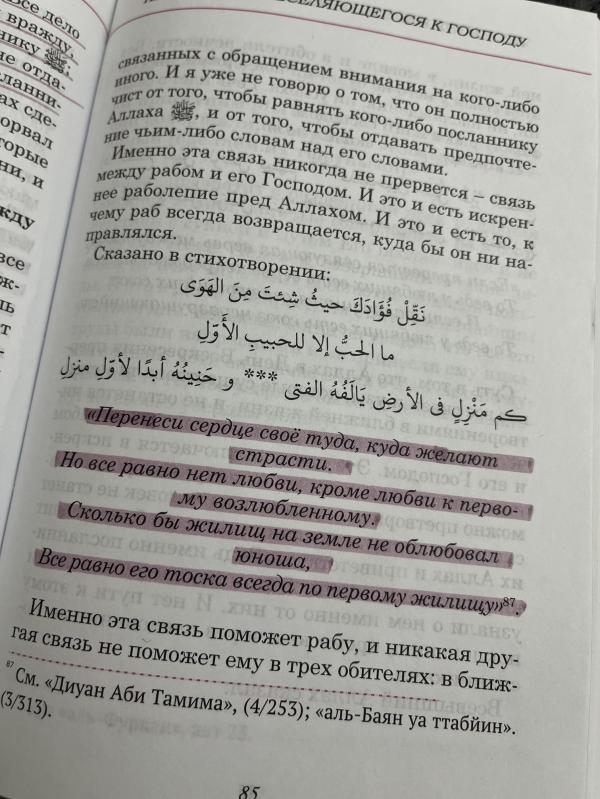 се дело
вражду,
нику ﷺ;
не отда-
сланни-
ах сде-
орвал
торые
ни, и
жду
все
ж-
ль
ет
СЕЛЯЮЩЕГОСЯ К ГОСПОДУ
связанных с обращением внимания на кого-либо
иного. И я уже не говорю о том, что он полностью
чист от того, чтобы равнять кого-либо посланнику
Аллаха ﷺ, и от того, чтобы отдавать предпочте-
ние чьим-либо словам над его словами.
Именно эта связь никогда не прервется – связь
между рабом и его Господом. И это и есть искрен-
нее раболепие пред Аллахом. И это и есть то, к
чему раб всегда возвращается, куда бы он ни на-
правлялся.
Сказано в стихотворении:
نَقِّلْ فُؤَادَكَ حيثُ شِئتَ مِنَ الهَوَى
ما الحبُّ إلا للحبيبِ الأَوَّلِ
كم مَنْزِلٍ فى الأرضِ يَالَفُهُ الفتى *** و حَنِينُهُ أبدًا لأوّلِ منزلِ
«Перенеси сердце своё туда, куда желают
страсти.
Но все равно нет любви, кроме любви к перво-
му возлюбленному.
Сколько бы жилищ на земле не облюбовал
юноша,
Все равно его тоска всегда по первому жилищу»⁸⁷.
Именно эта связь поможет рабу, и никакая дру-
гая связь не поможет ему в трех обителях: в ближ-
⁸⁷ См. «Диуан Аби Тамима», (4/253); «аль-Баян уа ттабйин».
(3/313).
85